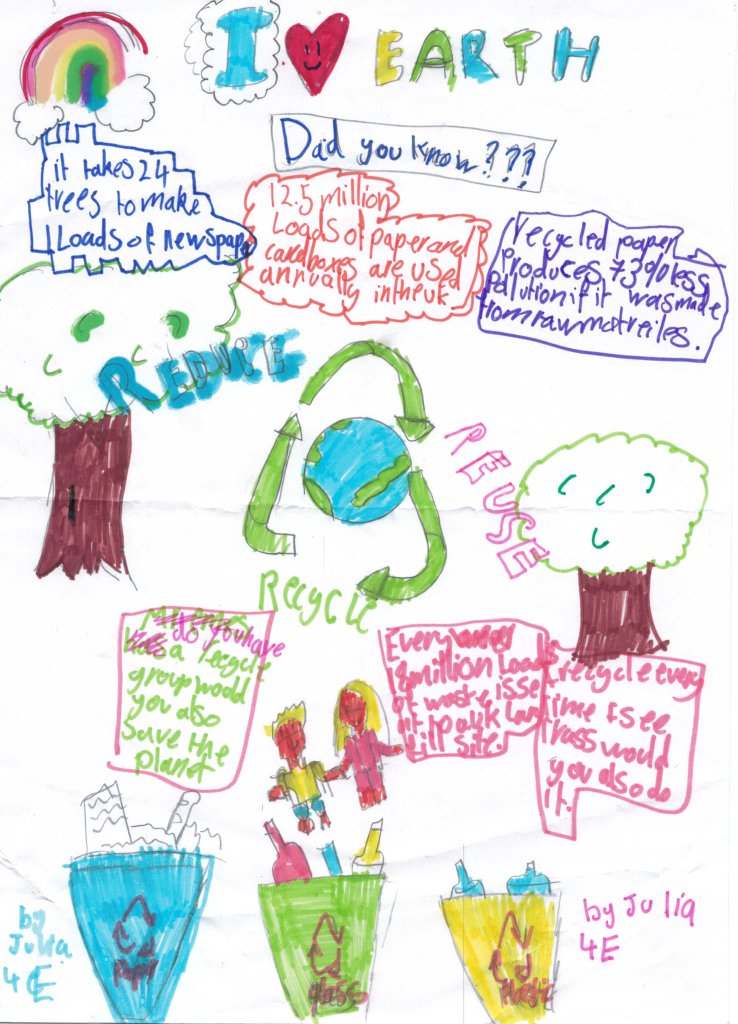 I ♥ EARTH
Did you know???
it takes 24
trees to make
1 Loads of newspape
12.5 million
Loads of paper and
cardboxes are used
annually in the uk
recycled paper
Produces 73% less
Pollution if it was made
from raw matreiles.
REDUCE
REUSE
Recycle
do you have
a recycle
group would
you also
save the
planet
Every
8 million Loads
of waste is se
nt to a uk Lan
fill site.
I recycle every
time I see
trass would
you also do
it.
by
Julia
4E
Paper
glass
Plastic
by Julia
4E